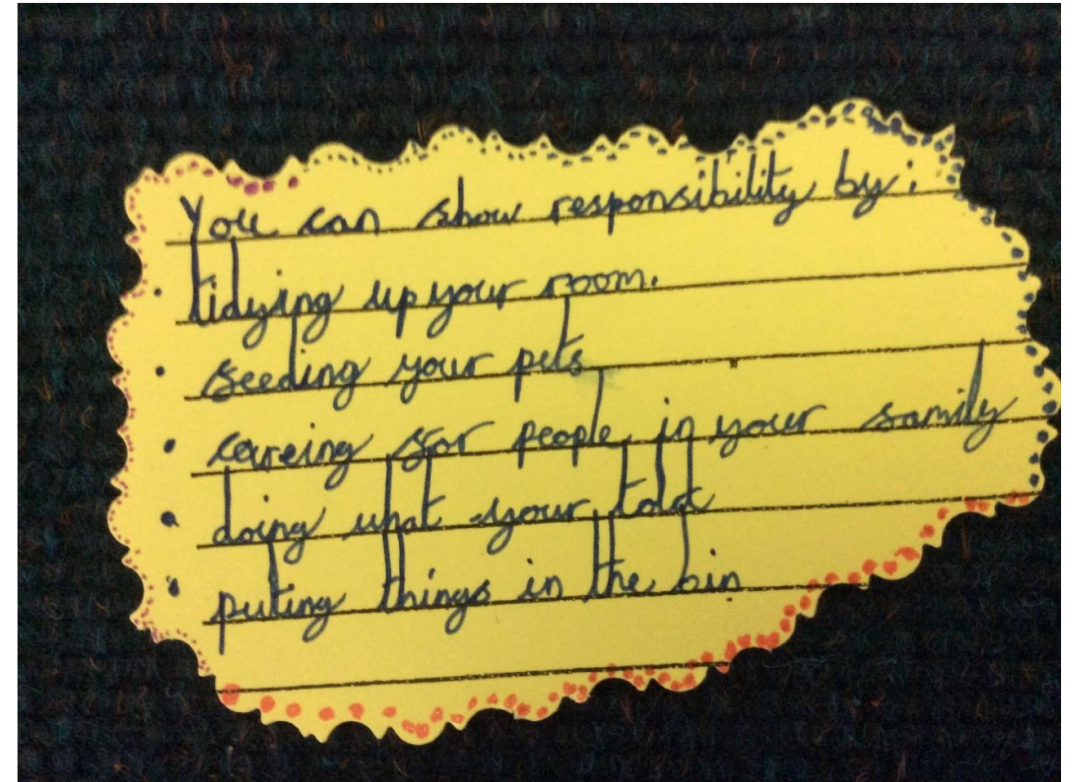 You can show responsibility by:
• tidying up your room.
• feeding your pets
• careing for people in your family
• doing what your told
• puting things in the bin